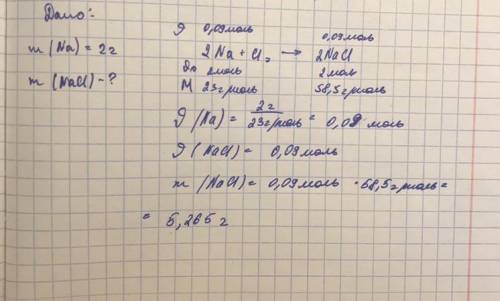 Дано:
m (Na) = 2г
m (NaCl) - ?
ϑ 0,09моль 0,09моль
2Na + Cl₂ → 2NaCl
2моль 2моль
M 23г/моль 58,5г/моль
ϑ (Na) = 2г / 23г/моль = 0,09 моль
ϑ (NaCl) = 0,09моль
m (NaCl) = 0,09моль · 58,5г/моль =
= 5,265 г